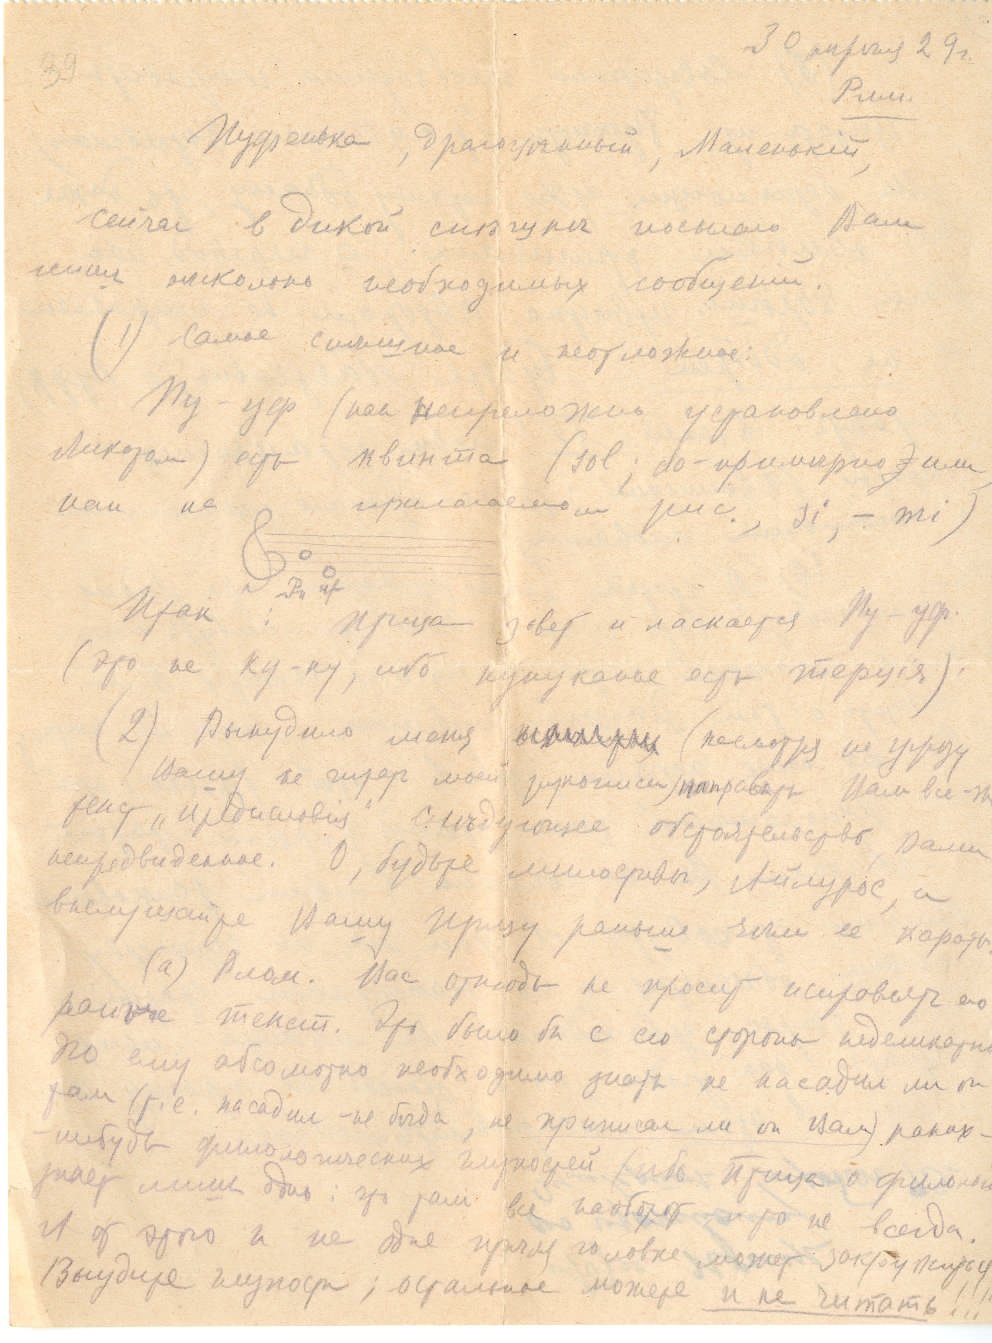 39
30 апреля 29 г.
Рим.
Пуфенька, драгоценный, Маленький,
сейчас в дикой спѣшке посылаю Вам
лишь несколько необходимых сообщений.
(1) Самое спешное и неотложное:
Пу-уф (как непреложно установлено
) есть квинта (sol; do-примерно или,
как на прилагаемом рис., si, - mi)
Пу уф
Итак: Птица зовет и ласкается Пу-уф.
(это не ку-ку, ибо кукуканье есть терція).
(2) Вынудило меня (несмотря на угрозу
Вашу не моей рукописи) направить Вам все-же
текст „Предисловія" слѣдующее обстоятельство, Вами
непредвиденное. О, будьте милостивы, Айлурос, и
выслушайте Вашу Птицу раньше чем ее карать.
(а) Влом. Вас отнюдь не просит исправлять его
текст. Это было бы с его стороны неделикатно
Это ему абсолютно необходимо знать не насадил ли он
там (т.е. насадил-не беда, не приписал ли он Вам) каких-
-нибудь филологических глупостей (ибо Птица о филологии
знает лишь одно: что там все наоборот и то не всегда.
А от этого и не одна птичья головка может закружиться
Выудите глупости; остальное можете и не читать!!!